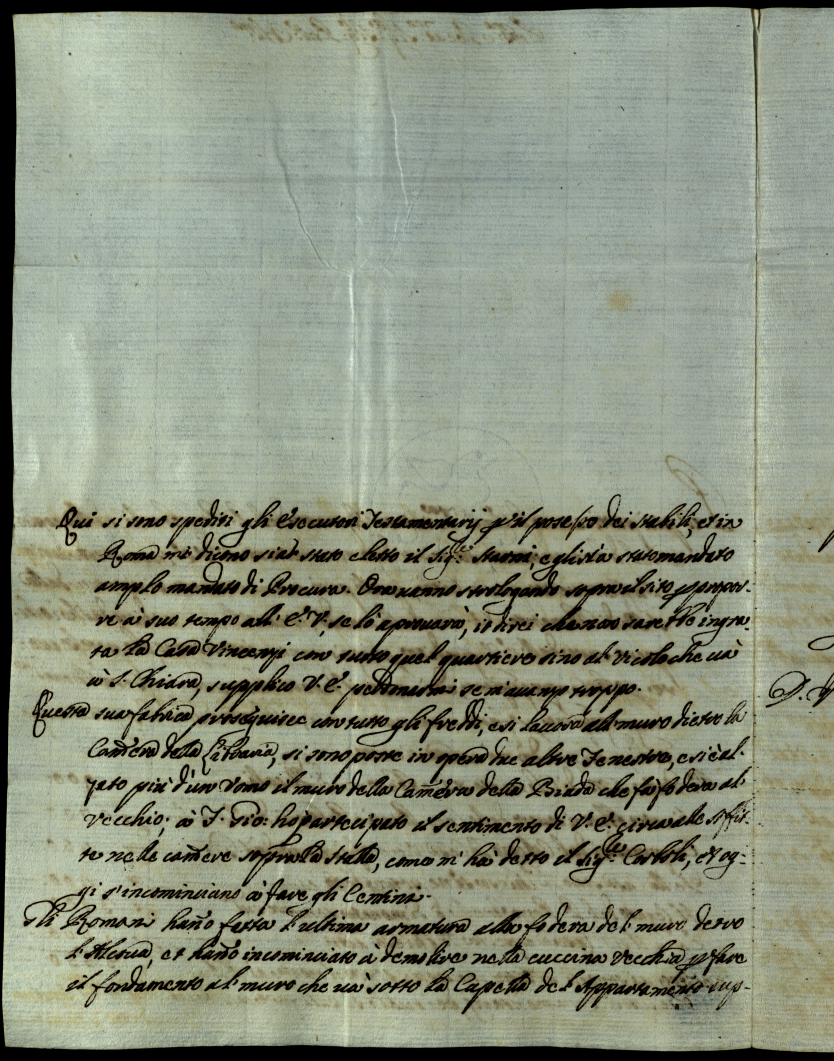 Qui si sono spediti gli Esecutori Testamentarij p il possesso dei stabili, et in
Roma mi dicono sia stato eletto il Sig.r e gli sia stato mandato
amplo mandato di Procura. Ora vanno strologando sopra il sito p propor-
re à suo tempo all' E. V., se lo aprouarà, io direi che non sarebbe ingra-
ta la Casa Vincenzi con tutto quel quartiere sino al vicolo che uà
à S. Chiara, supplico V. E. perdonarmi se m'auanzo troppo.
Questa sua fabrica proseguisce con tutto gli freddi, e si lauora all muro dietro la
Camera della Libraria, si sono poste in opera due altre Fenestre, e si è al-
zato più d'un Vomo il muro della Camera della Biada che fa fodera al
vecchio; à F. Gio: ho partecipato il sentimento di V. E. circa alle soffit-
te nelle camere sopra la stalla, come m' hà detto il Sig.r Corboli, et og-
gi s'incominciano à fare gli Centini.
Gli Romani hano fatta l'ultima armatura alla fodera del muro detro
l'Alcoua, et hano incominciato à demolire nella cuccina vecchia p fare
il fondamento al muro che uà sotto la Capella del Appartamento sup-